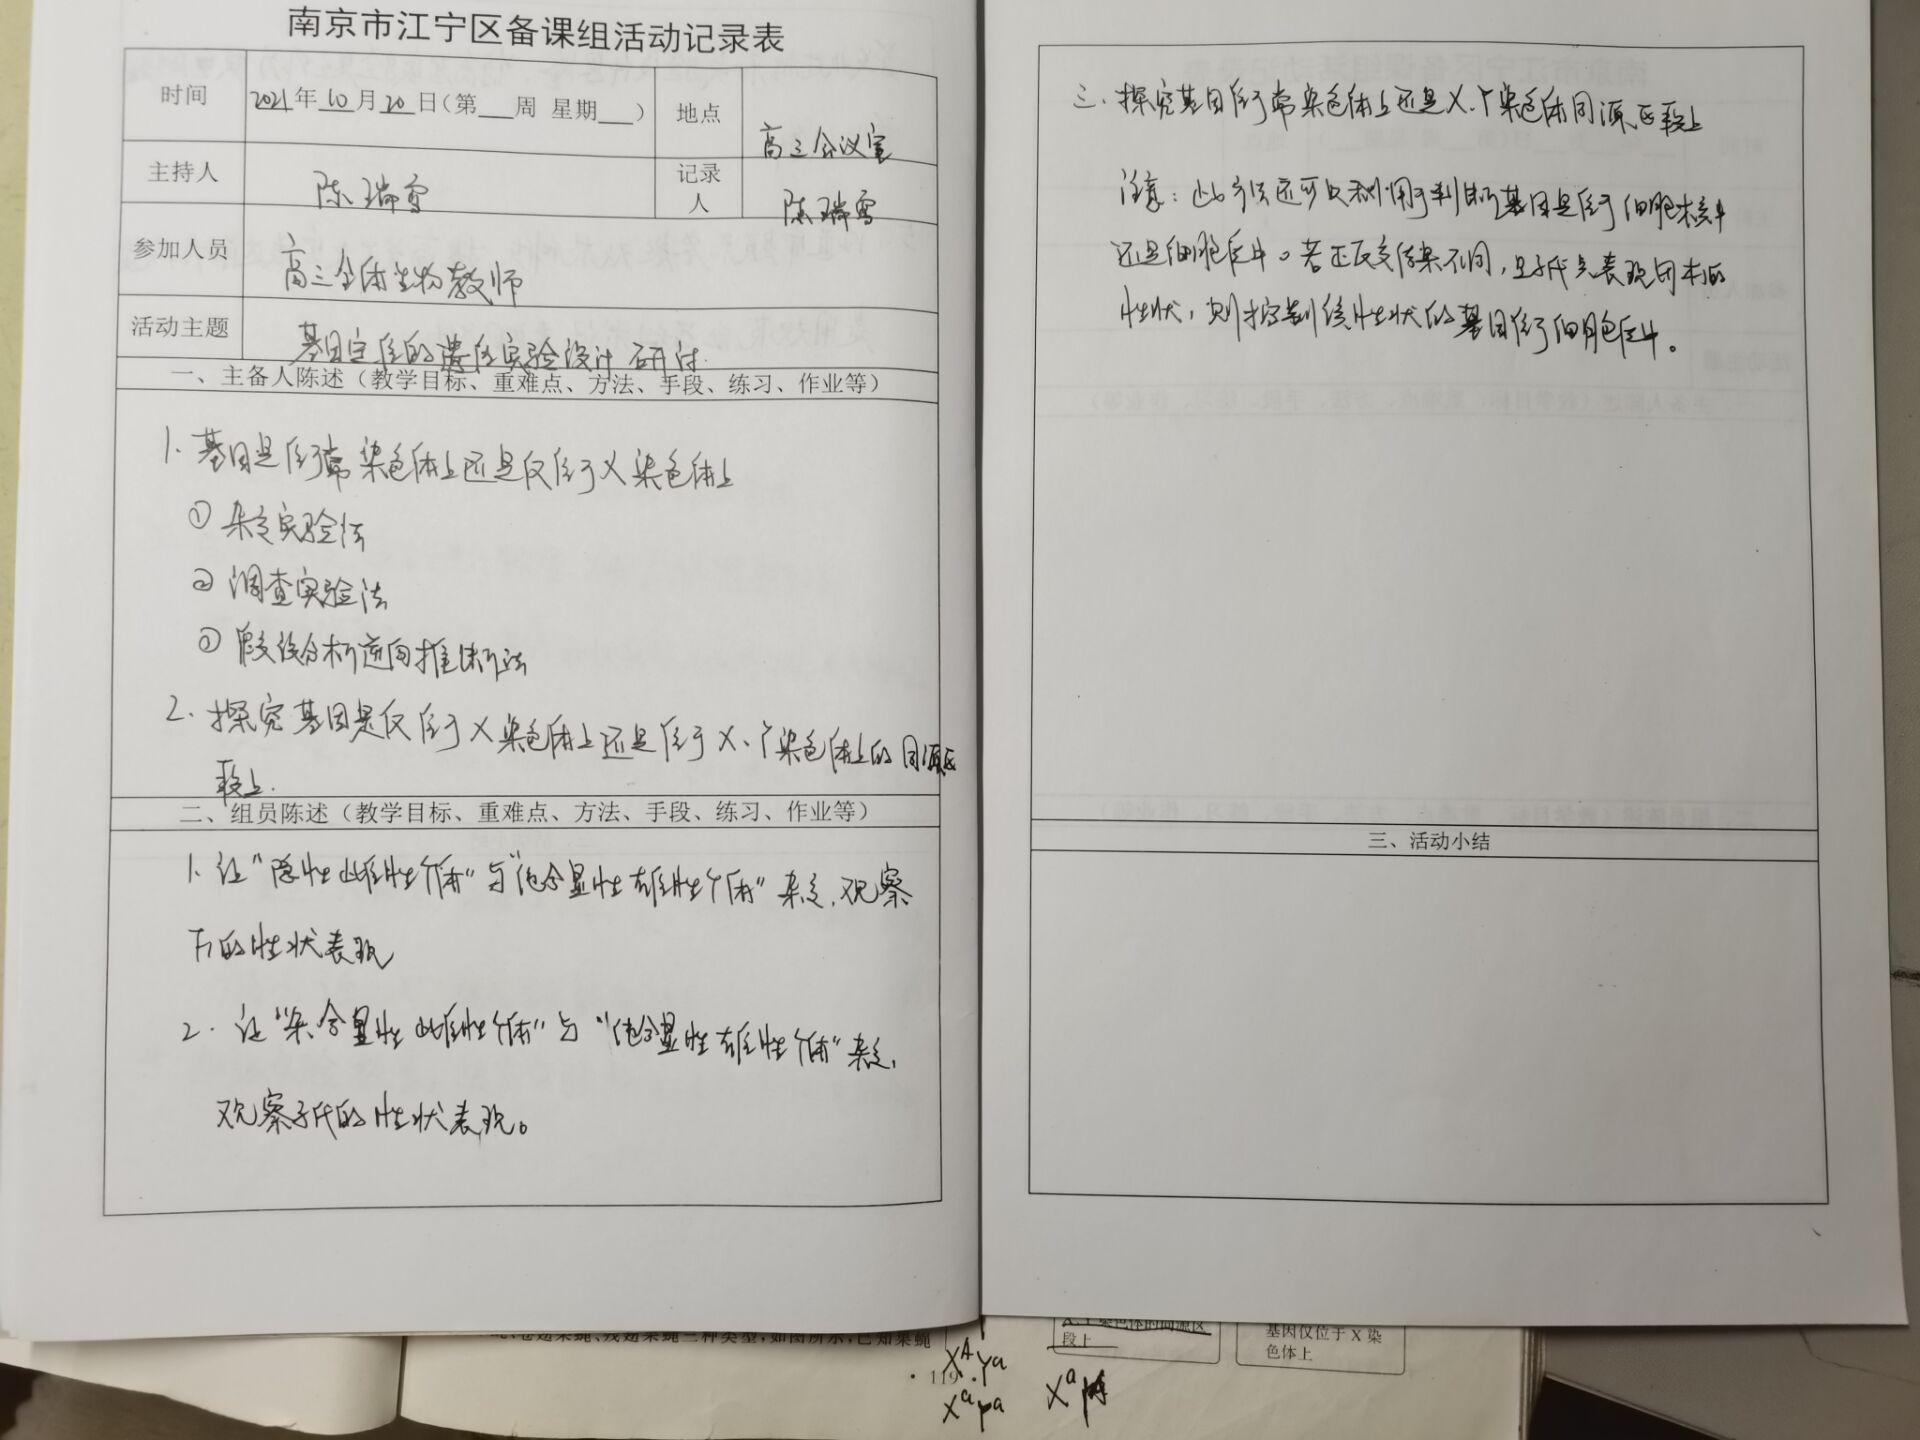 南京市江宁区备课组活动记录表
时间 2021年10月20日(第___周 星期___) 地点 高三会议室
主持人 陈瑞雪 记录人 陈瑞雪
参加人员 高三全体生物教师
活动主题 基因定位的遗传实验设计研讨.
一、主备人陈述（教学目标、重难点、方法、手段、练习、作业等）
1. 基因是位于常染色体上还是仅位于X染色体上
① 杂交实验法
② 调查实验法
③ 假设分析逆向推断法
2. 探究基因是仅位于X染色体上还是位于X、Y染色体上的同源区
段上.
二、组员陈述（教学目标、重难点、方法、手段、练习、作业等）
1. 让“隐性雌性个体”与“纯合显性雄性个体”杂交,观察
F1的性状表现
2. 让“杂合显性雌性个体”与“纯合显性雄性个体”杂交,
观察子代的性状表现。
三. 探究基因位于常染色体上还是X、Y染色体同源区段上
注意：此方法还可以利用于判断基因是位于细胞核中
还是细胞质中。若正反交结果不同，且子代只表现母本的
性状，则控制该性状的基因位于细胞质中。
三、活动小结
卷翅果蝇、残翅果蝇三种类型,如图所示,已知果蝇
段上
基因仅位于X染
色体上
· 119 ·
X^A Y^a
X^a Y^a
X^a